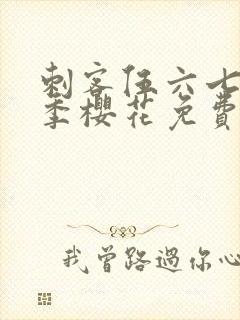 刺客伍六七
季樱花免費
我曾路過你心